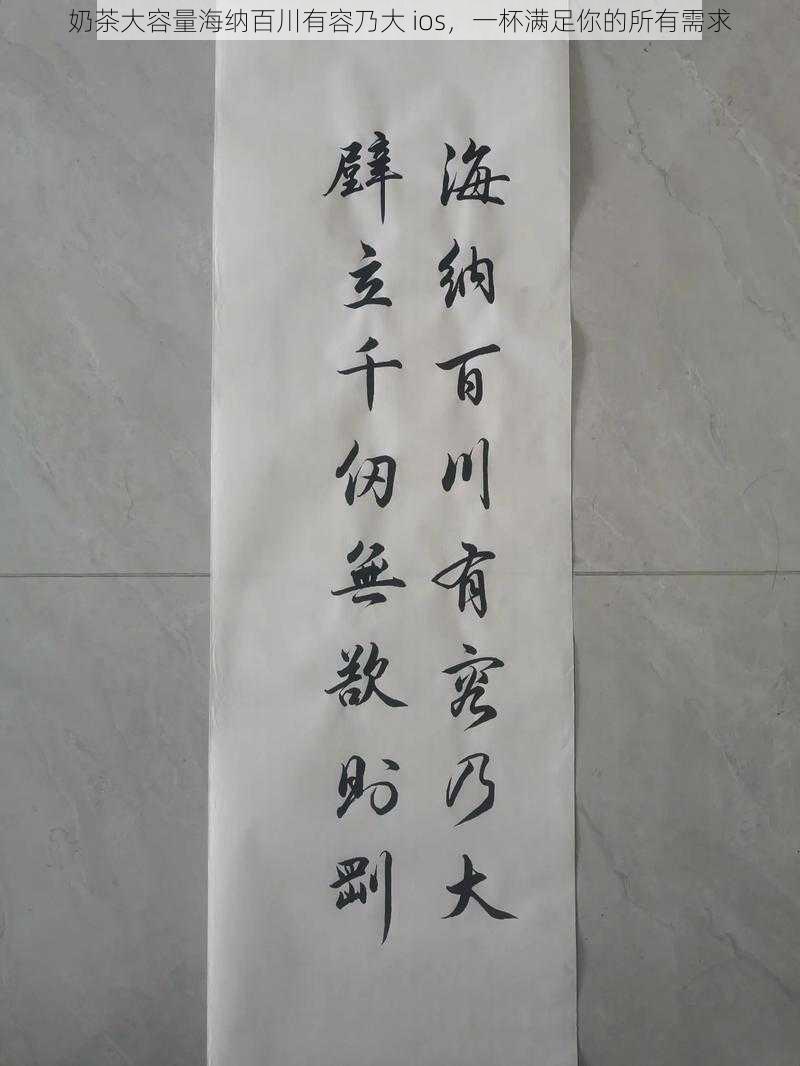 奶茶大容量海纳百川有容乃大 ios，一杯满足你的所有需求
海纳百川有容乃大
壁立千仞無欲则剛